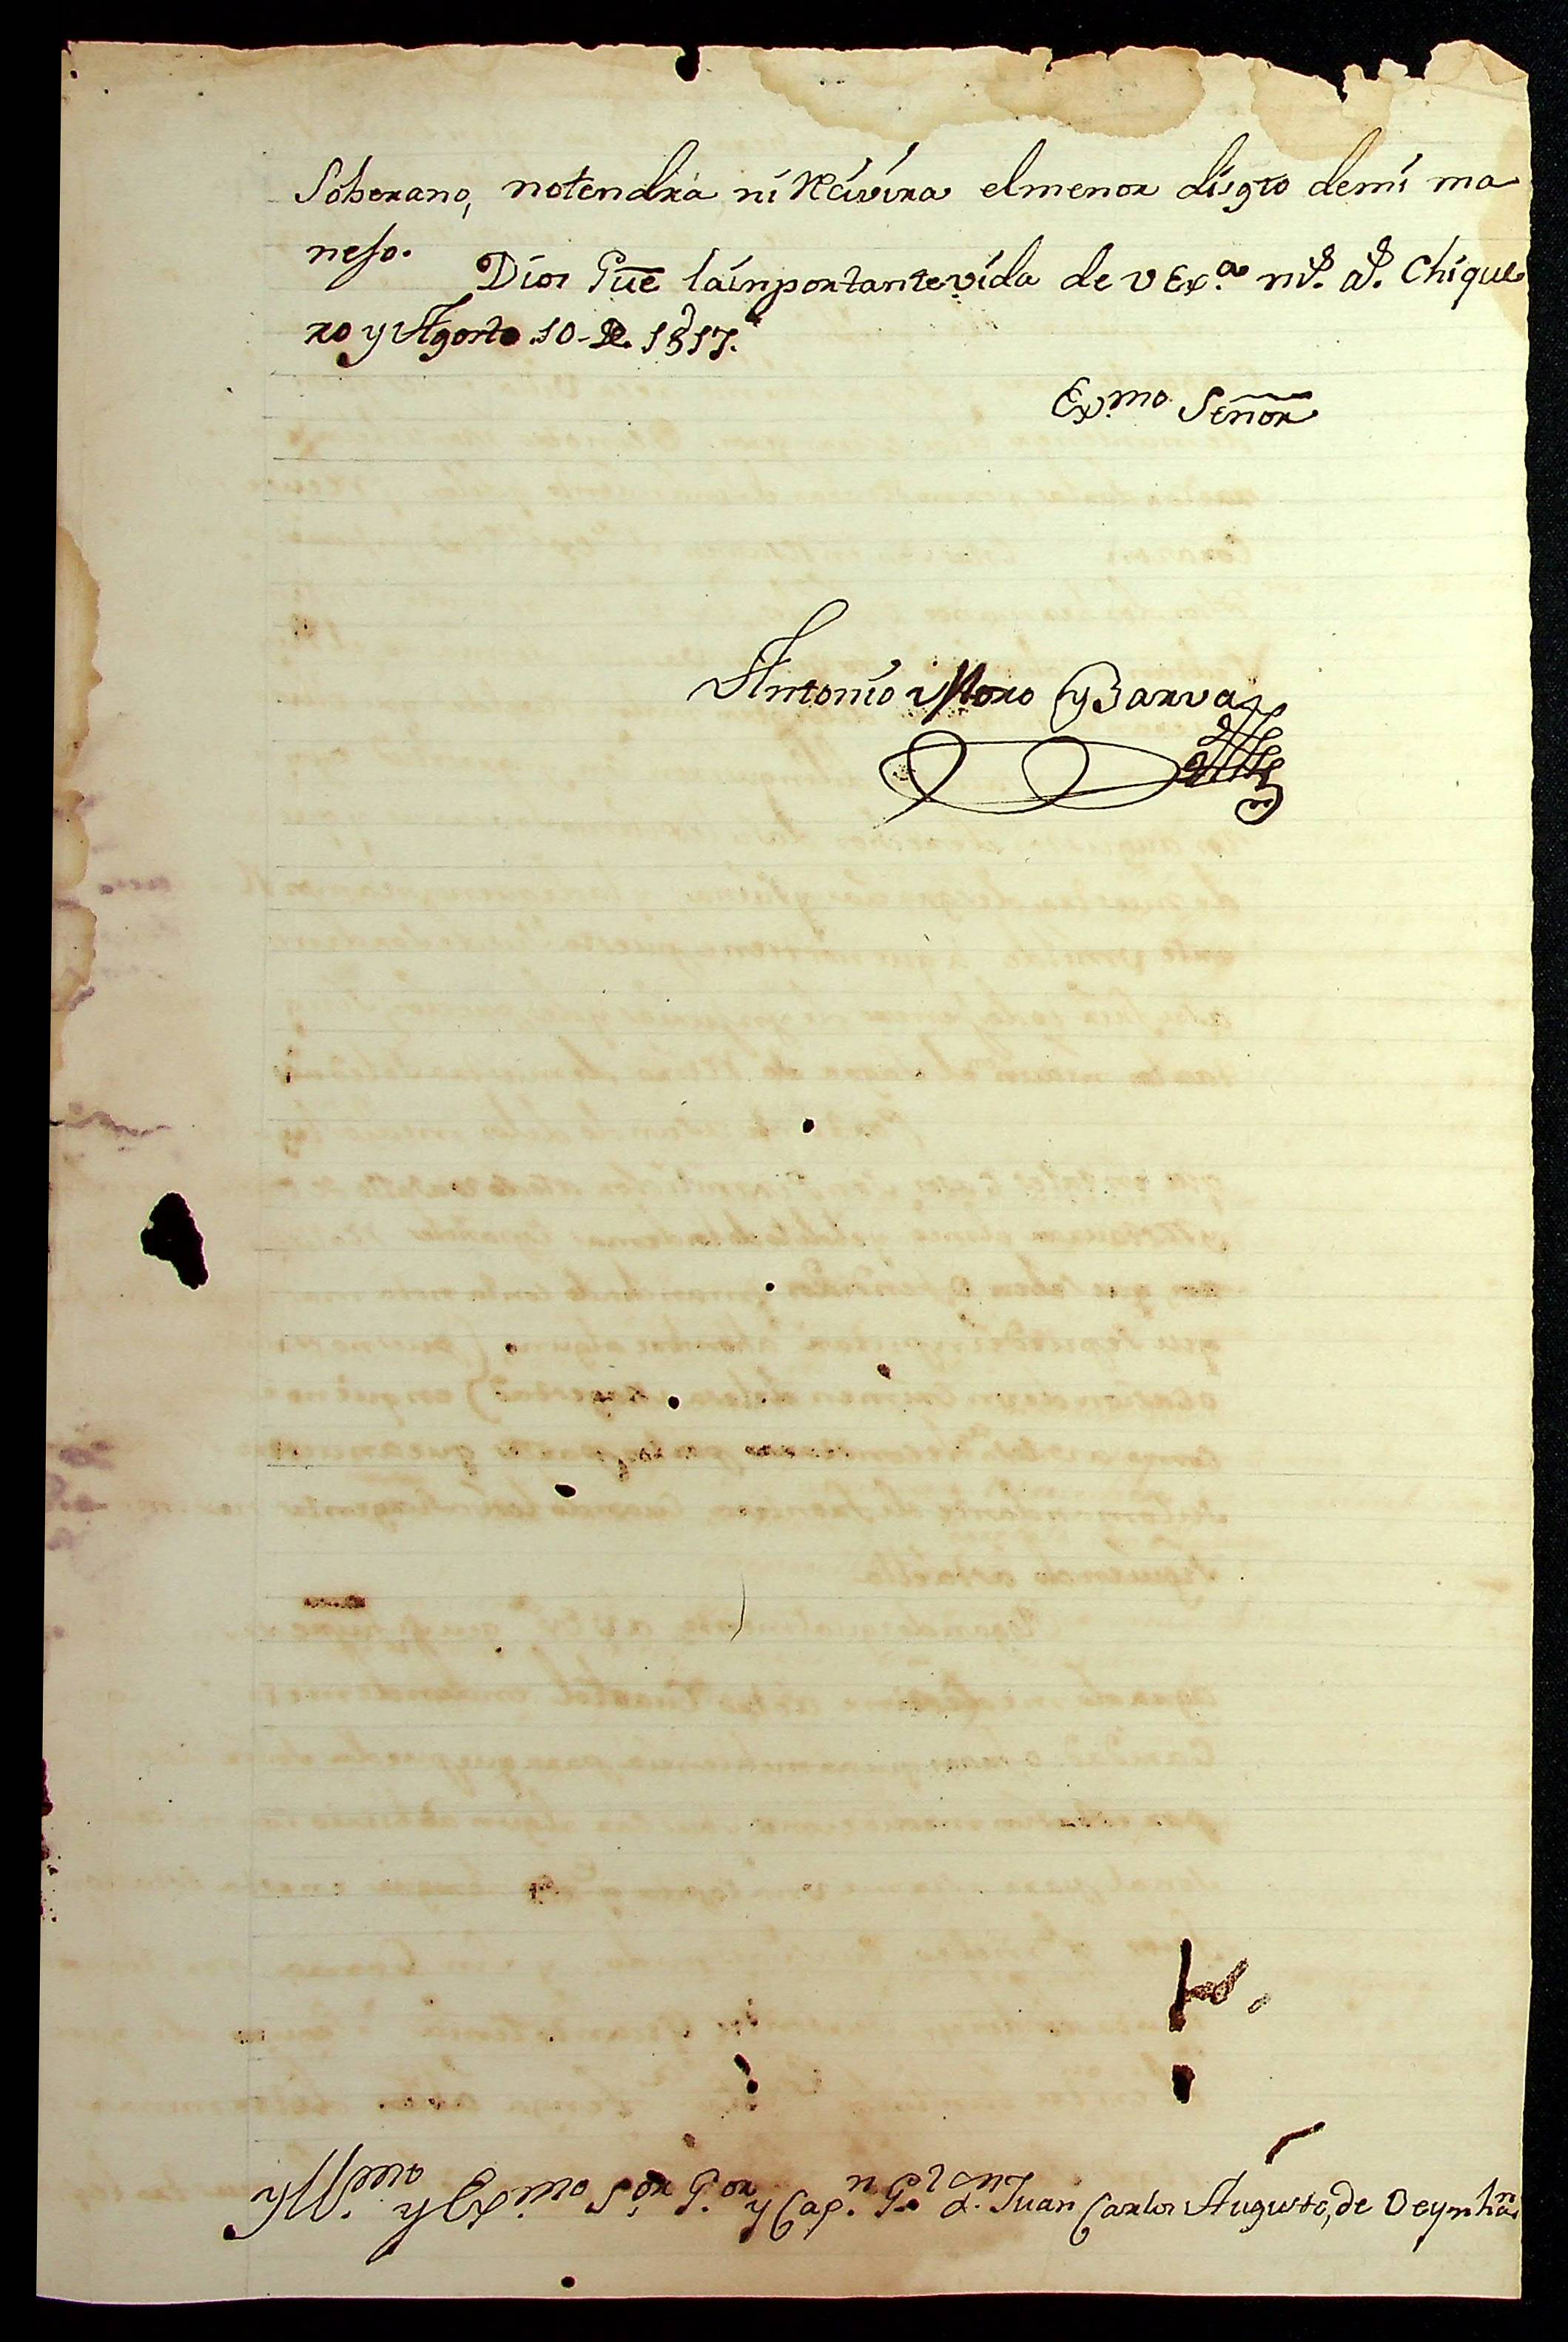 Soberano, notendra ni Recivira elmenor disgto demi ma
nefo.
Dios Gue lainportantevida de V Exa. ms. as. Chique
ro y Agosto 10-De. 1817.
Exmo Señor
Antonio Moro y Barva
Yllmo. y Exmo. Sor. Gor. y Capn. Gl. dn. Juan Carlos Augusto, de Oeynhan